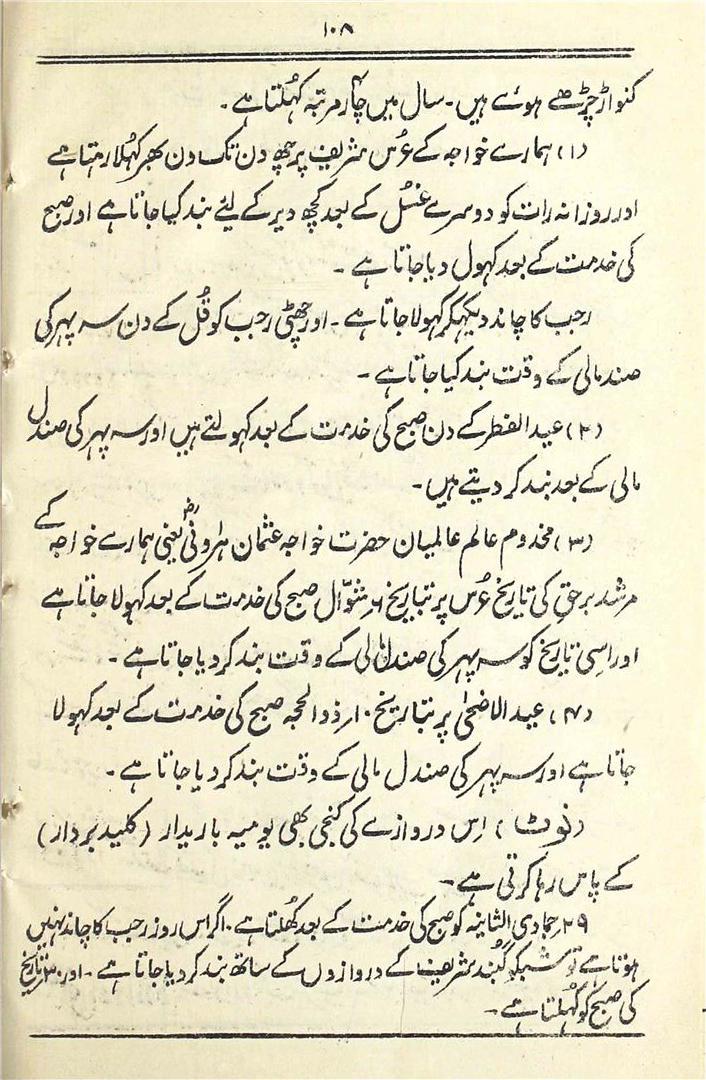 ۱۰۸
کنواڑ چڑھے ہوئے ہیں۔ سال میں چار مرتبہ کُہلتا ہے۔
(۱) ہمارے خواجہ کے عُرس شریف پر چھ دن تک دن بھر کُہلا رہتا ہے
اور روزانہ رات کو دوسرے غسُل کے بعد کچھ دیر کے لئے بند کیا جاتا ہے اور صبح
کی خدمت کے بعد کہول دیا جاتا ہے۔
رجب کا چاند دیکہکر کہولا جاتا ہے۔ اور چھٹی رجب کو قُل کے دن سہ پہر کی
صندمالی کے وقت بند کیا جاتا ہے۔
(۲) عید الفطر کے دن صبح کی خدمت کے بعد کہولتے ہیں اور سہ پہر کی صندل
مالی کے بعد بند کر دیتے ہیں۔
(۳) مخدوم عالم عالمیان حضرت خواجہ عثمان ہارونیؓ یعنی ہمارے خواجہ کے
مرشد برحق کی تاریخ عُرس پر بتاریخ ۶ شوّال صبح کی خدمت کے بعد کہولا جاتا ہے
اور اسِی تاریخ کو سہ پہر کی صندل مالی کے وقت بند کر دیا جاتا ہے۔
(۴) عید الاضحٰی پر بتاریخ ۱۰ ذوالحجہ صبح کی خدمت کے بعد کہولا
جاتا ہے اور سہ پہر کی صندل مالی کے وقت بند کر دیا جاتا ہے۔
(نوٹ) اِس دروازے کی کنجی بھی یومیہ باریدار (کلید بردار)
کے پاس رہا کرتی ہے۔
۲۹ جمادی الثانیہ کو صبح کی خدمت کے بعد کھُلتا ہے۔ اگر اس روز رجب کا چاند نہیں
ہوتا ہے تو شب کو گنبد شریف کے دروازوں کے ساتھ بند کر دیا جاتا ہے۔ اور ۳۰ تاریخ
کی صبح کو کُہلتا ہے۔